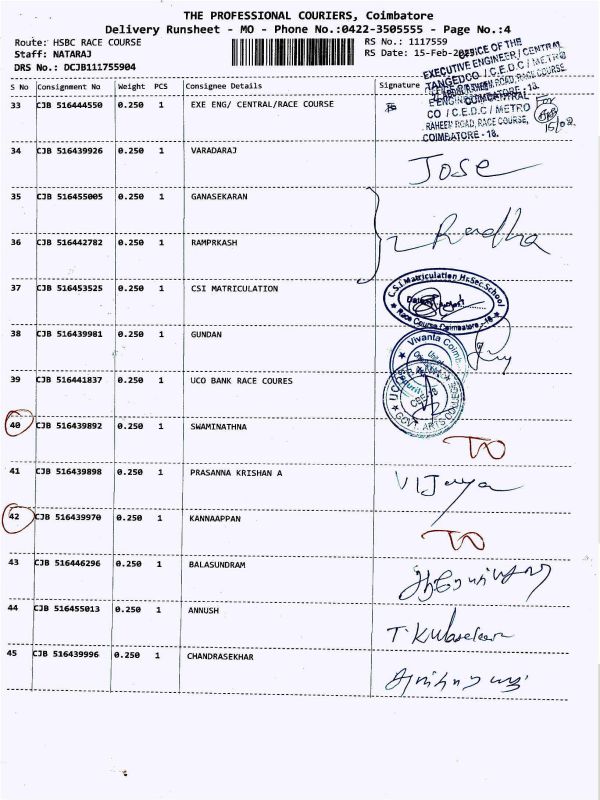 THE PROFESSIONAL COURIERS, Coimbatore
Delivery Runsheet - MO - Phone No.:0422-3505555 - Page No.:4
Route: HSBC RACE COURSE
Staff: NATARAJ
DRS No.: DCJB111755904
RS No.: 1117559
RS Date: 15-Feb-2025
OFFICE OF THE
EXECUTIVE ENGINEER / CENTRAL
TANGEDCO / C.E.D.C / METRO
S No Consignment No Weight PCS Consignee Details Signature
33 CJB 516444550 0.250 1 EXE ENG/ CENTRAL/RACE COURSE
CO / C.E.D.C / METRO
RAHEEM ROAD, RACE COURSE,
COIMBATORE - 18.
15/02
34 CJB 516439926 0.250 1 VARADARAJ Jose
35 CJB 516455005 0.250 1 GANASEKARAN
36 CJB 516442782 0.250 1 RAMPRKASH Radha
37 CJB 516453525 1 0.250 CSI MATRICULATION
C.S.I Matriculation Hr.Sec.School
Race Course Coimbatore - 18
38 CJB 516439981 0.250 1 GUNDAN
Vivanta Coimb
39 CJB 516441837 0.250 1 UCO BANK RACE COURES
GOVT ARTS COLLEGE
40 CJB 516439892 0.250 1 SWAMINATHNA TO
41 CJB 516439898 0.250 1 PRASANNA KRISHAN A VIJaya
42 CJB 516439970 0.250 1 KANNAAPPAN TO
43 CJB 516446296 0.250 1 BALASUNDRAM
44 CJB 516455013 0.250 1 ANNUSH
45 CJB 516439996 0.250 1 CHANDRASEKHAR